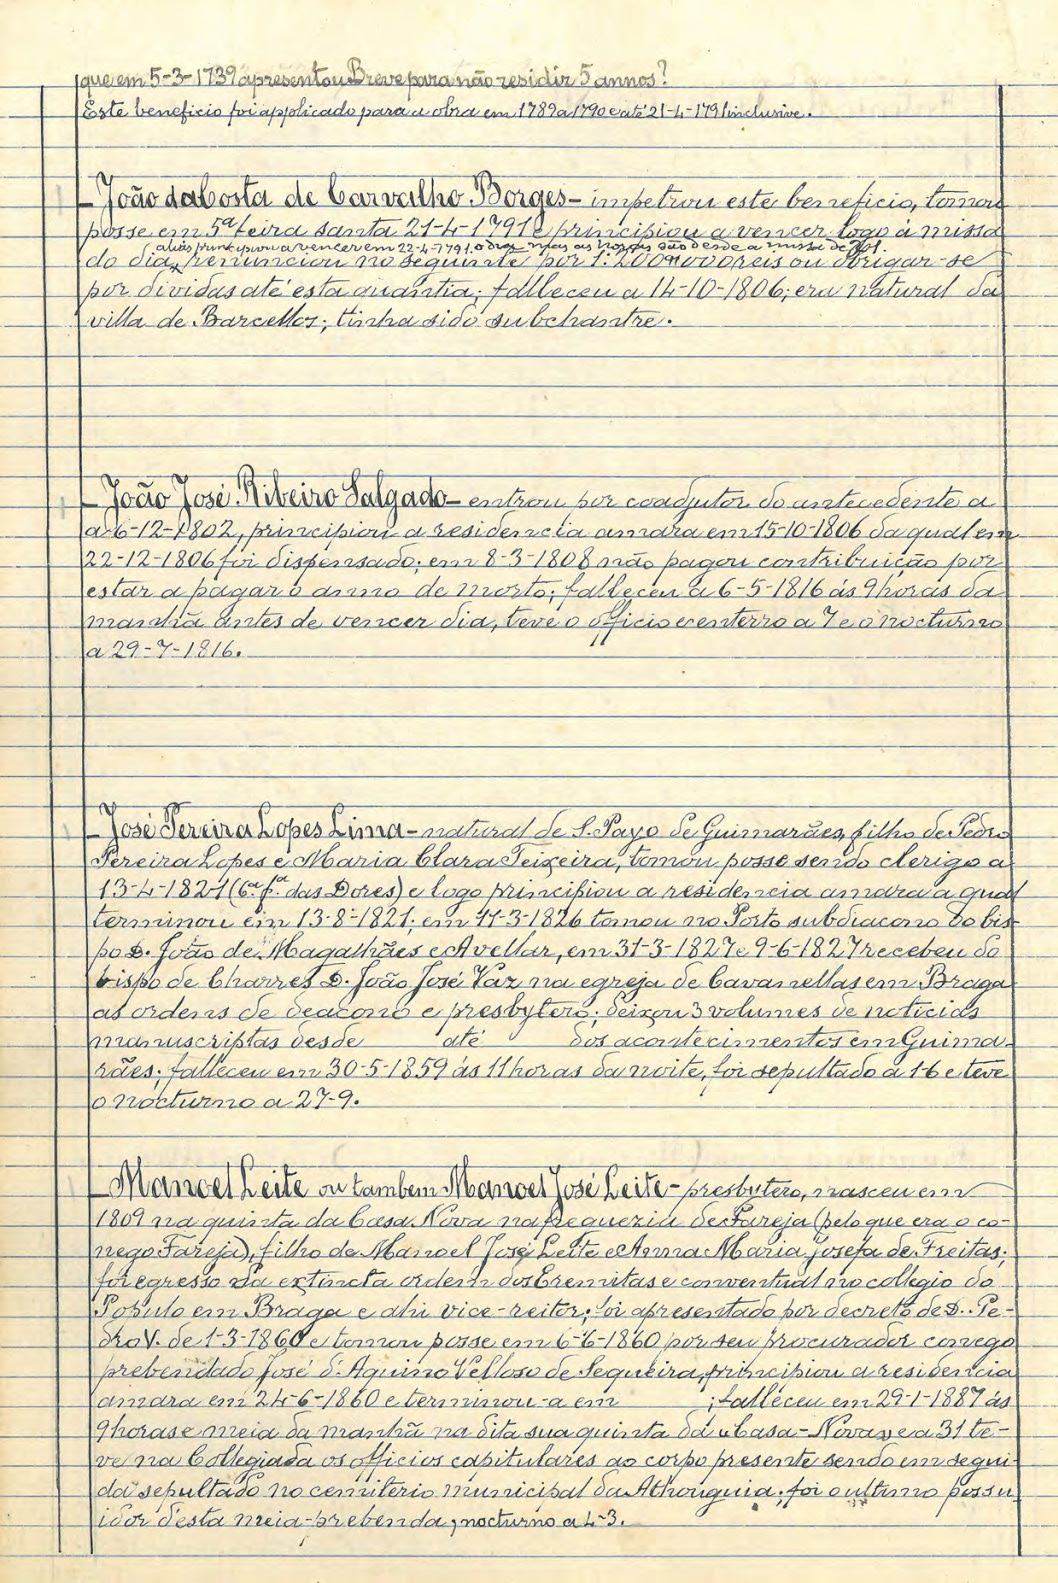 que em 5-3-1739 apresentou Breve para não residir 5 annos?
Este beneficio foi applicado para a obra em 1789 a 1790 e até 21-4-1791 inclusive.
João da Costa de Carvalho Borges - impetrou este beneficio, tomou
posse em 5ª feira santa 21-4-1791 e principiou a vencer logo á missa
(aliás principiou a vencer em 22-4-1791, o dia, mas as horas são desde a missa de 21).
do dia, renunciou no seguinte por 1:200$000 reis ou obrigar-se
por dividas até esta quantia; falleceu a 14-10-1806; era natural da
villa de Barcellos; tinha sido subchantre.
João José Ribeiro Salgado - entrou por coadjutor do antecedente a
a 6-12-1802, principiou a residencia amara em 15-10-1806 da qual em
22-12-1806 foi dispensado; em 8-3-1808 não pagou contribuição por
estar a pagar o anno de morto; falleceu a 6-5-1816 ás 9 horas da
manhã antes de vencer dia, teve o officio e enterro a 7 e o nocturno
a 29-7-1816.
José Pereira Lopes Lima - natural de S. Payo de Guimarães, filho de Pedro
Pereira Lopes e Maria Clara Teixeira, tomou posse sendo clerigo a
13-4-1821 (6ª fª das Dores) e logo principiou a residencia amara a qual
terminou em 13-8-1821; em 11-3-1826 tomou no Porto subdiacono do bis-
po D. João de Magalhães e Avellar, em 31-3-1827 e 9-6-1827 recebeu do
bispo de Charres D. João José Vaz na egreja de Cavanellas em Braga
as ordens de deacono e presbytero; deixou 3 volumes de noticias
manuscriptas desde até dos acontecimentos em Guima-
rães; falleceu em 30-5-1859 ás 11 horas da noite, foi sepultado a 1-6 e teve
o nocturno a 27-9.
Manoel Leite ou tambem Manoel José Leite - presbytero, nasceu em
1809 na quinta da Casa Nova na freguezia de Fareja (pelo que era o co-
nego Fareja), filho de Manoel José Leite e Anna Maria Josefa de Freitas;
foi egresso da extincta ordem dos Eremitas e conventual no collegio do
Populo em Braga e ahi vice-reitor; foi apresentado por decreto de D. Pe-
dro V. de 1-3-1860 e tomou posse em 6-6-1860 por seu procurador conego
prebendado José d'Aquino Velloso de Sequeira, principiou a residencia
amara em 24-6-1860 e terminou-a em ; falleceu em 29-1-1887 ás
9 horas e meia da manhã na dita sua quinta da Casa-Nova, e a 31 te-
ve na Collegiada os officios capitulares ao corpo presente sendo em segui-
da sepultado no cemiterio municipal da Athouguia; foi o ultimo possu-
idor d'esta meia-prebenda; nocturno a 4-3.